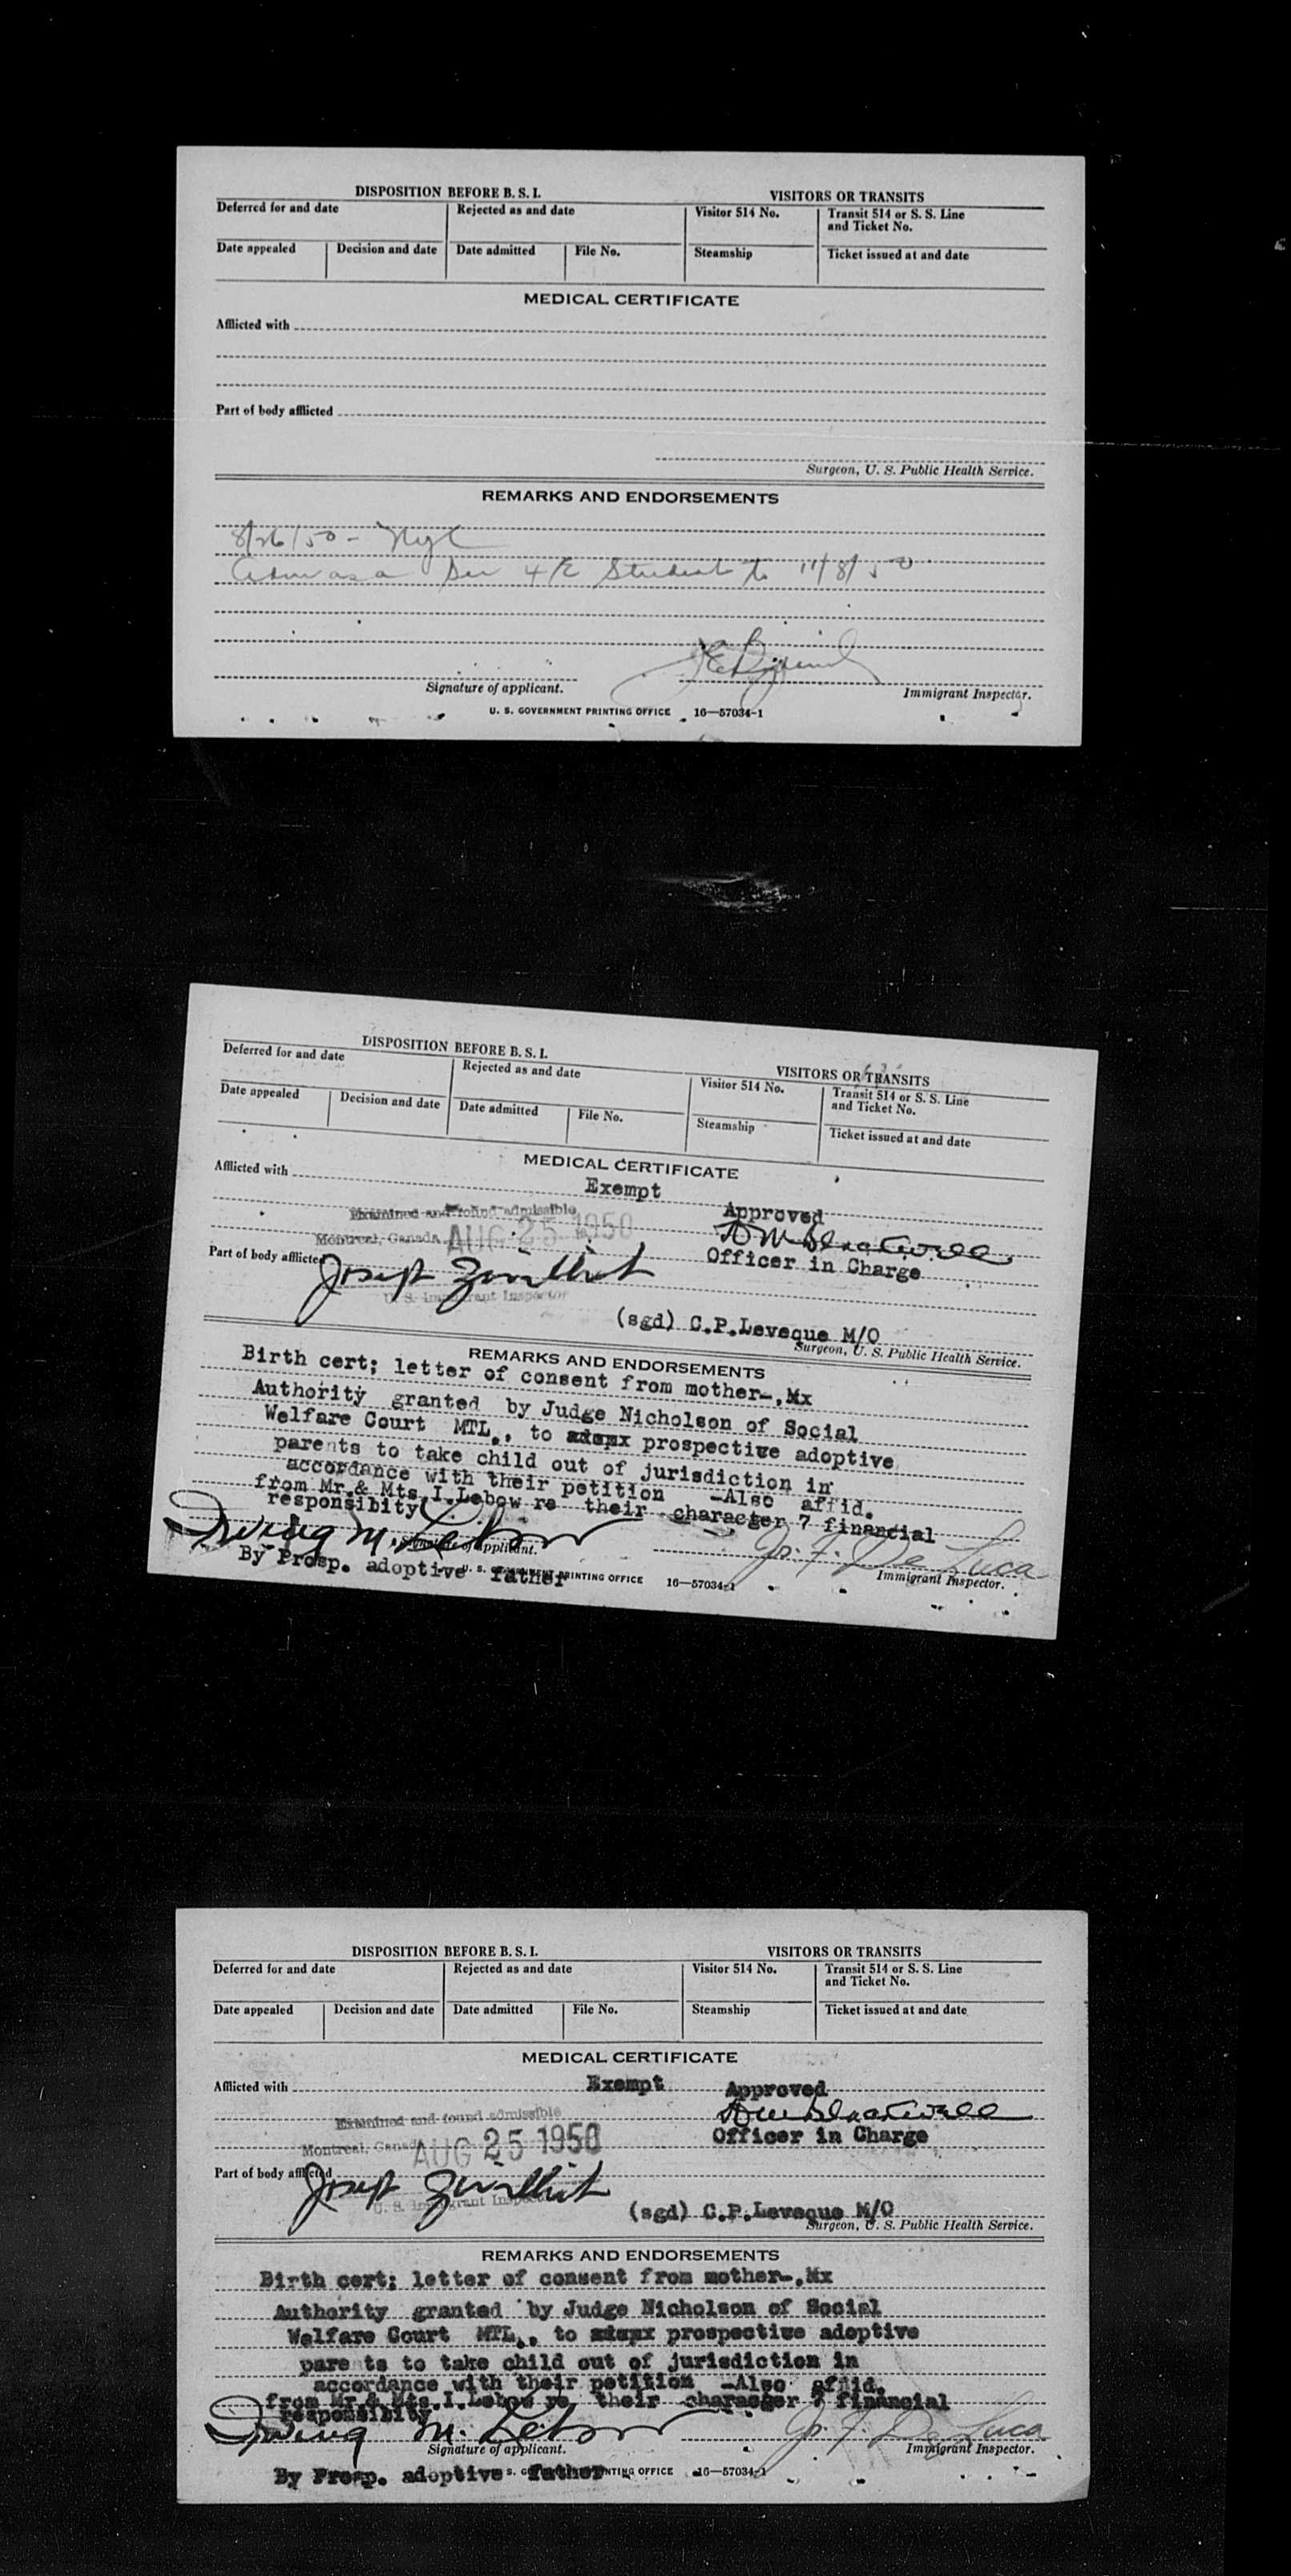 DISPOSITION BEFORE B. S. I.
VISITORS OR TRANSITS
Deferred for and date
Rejected as and date
Visitor 514 No.
Transit 514 or S. S. Line and Ticket No.
Date appealed
Decision and date
Date admitted
File No.
Steamship
Ticket issued at and date
MEDICAL CERTIFICATE
Afflicted with
Part of body afflicted
Surgeon, U. S. Public Health Service.
REMARKS AND ENDORSEMENTS
8/26/50 - NYC
as a 4/2 Student to 11/8/50
Signature of applicant.
Immigrant Inspector.
U. S. GOVERNMENT PRINTING OFFICE 16—57034-1
DISPOSITION BEFORE B. S. I.
VISITORS OR TRANSITS
Deferred for and date
Rejected as and date
Visitor 514 No.
Transit 514 or S. S. Line and Ticket No.
Date appealed
Decision and date
Date admitted
File No.
Steamship
Ticket issued at and date
MEDICAL CERTIFICATE
Afflicted with
Exempt
Approved
Examined and found admissible
Montreal, Canada AUG 25 1950
Officer in Charge
Part of body afflicted
Joseph
U. S. Immigrant Inspector
(sgd) C.P.Leveque M/O
Surgeon, U. S. Public Health Service.
REMARKS AND ENDORSEMENTS
Birth cert; letter of consent from mother-,Mx
Authority granted by Judge Nicholson of Social
Welfare Court MTL., to prospective adoptive
parents to take child out of jurisdiction in
accordance with their petition -Also affid.
from Mr.& Mts.I.Lebow re their characger 7 financial
responsibity
Irving M. Lebow
Jos. F. De Luca
Signature of applicant.
Immigrant Inspector.
By Prosp. adoptive father
U. S. GOVERNMENT PRINTING OFFICE 16—57034-1
DISPOSITION BEFORE B. S. I.
VISITORS OR TRANSITS
Deferred for and date
Rejected as and date
Visitor 514 No.
Transit 514 or S. S. Line and Ticket No.
Date appealed
Decision and date
Date admitted
File No.
Steamship
Ticket issued at and date
MEDICAL CERTIFICATE
Afflicted with
Exempt
Approved
Examined and found admissible
Montreal, Canada AUG 25 1950
Officer in Charge
Part of body afflicted
Joseph
U. S. Immigrant Inspector
(sgd) C.P.Leveque M/O
Surgeon, U. S. Public Health Service.
REMARKS AND ENDORSEMENTS
Birth cert; letter of consent from mother-,Mx
Authority granted by Judge Nicholson of Social
Welfare Court MTL., to prospective adoptive
pare ts to take child out of jurisdiction in
accordance with their petition -Also affid.
from Mr.& Mts.I.Lebow re their characger 7 financial
responsibity
Irving M. Lebow
Jos. F. De Luca
Signature of applicant.
Immigrant Inspector.
By Prosp. adoptive father
U. S. GOVERNMENT PRINTING OFFICE 16—57034-1